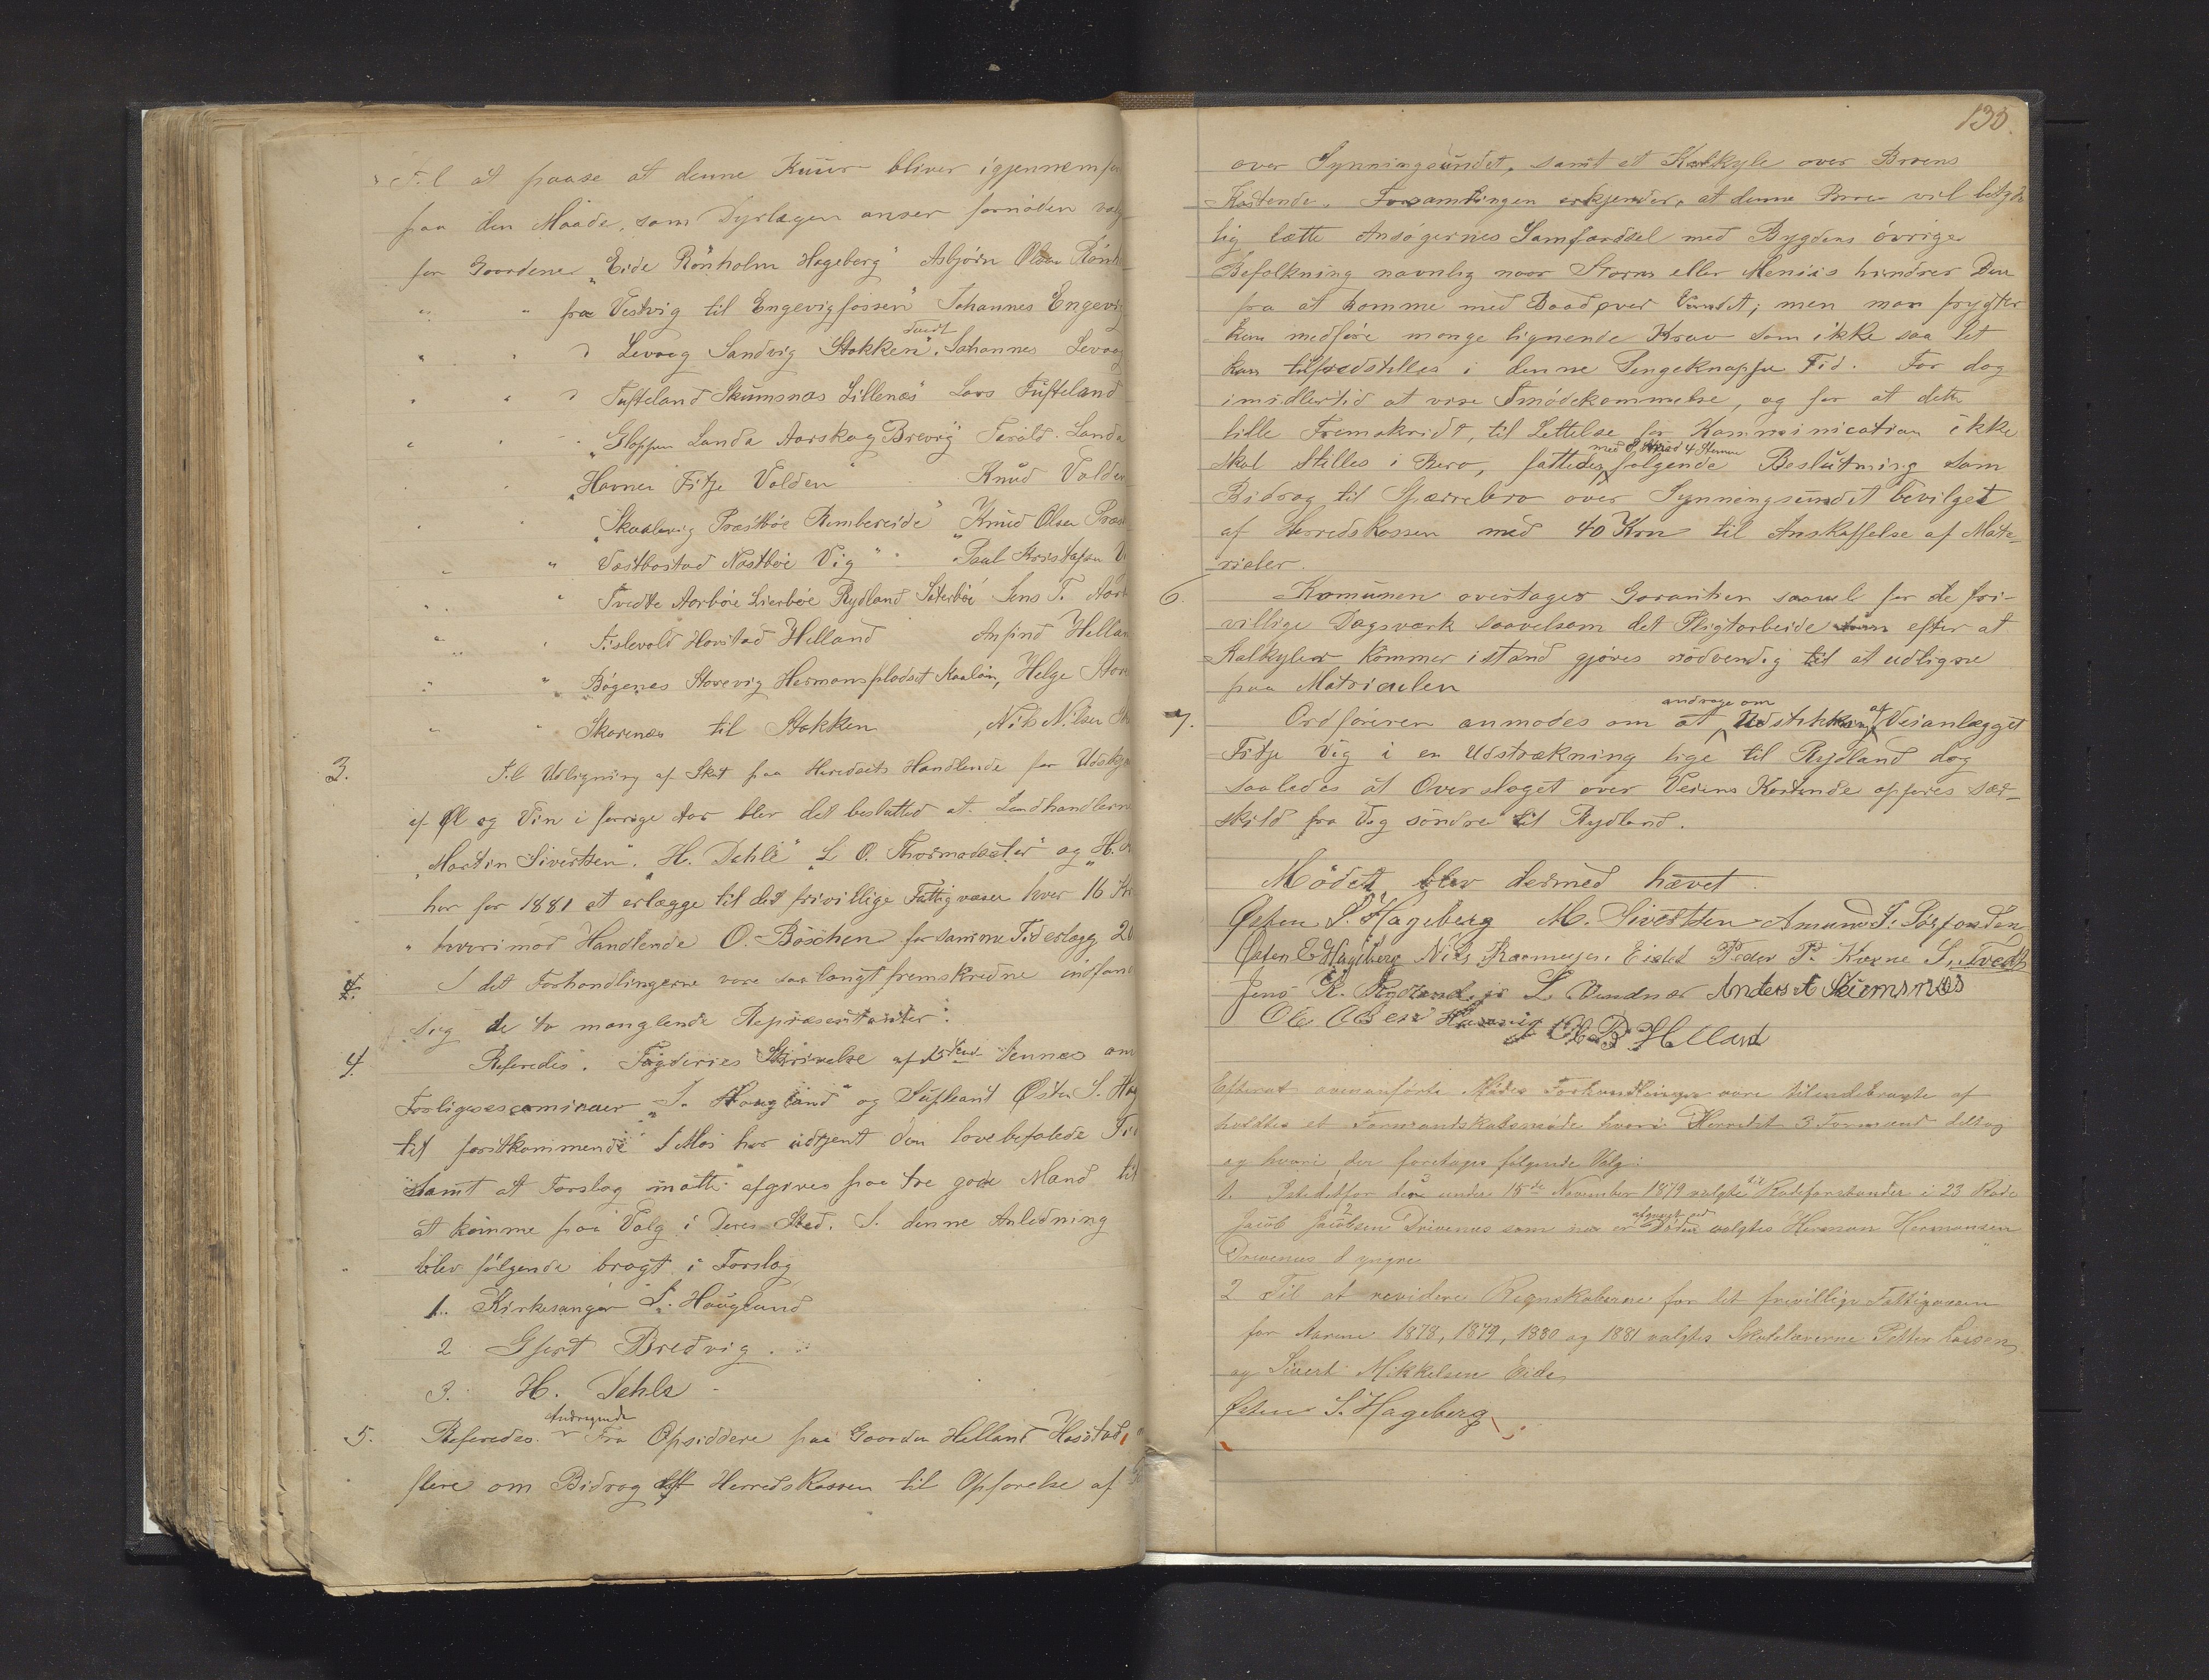 Til at paase at denne Kuur bliver igjennemfør
paa den Maade, som Dyrlægen anser fornøden valg
for Gaardene "Eide Rönholm Hageberg" Asbjørn Olsen Rönh
" " fra Vestvig til Engevigfossen" Johannes Engevig
" " " Levaag Sandvig Stokken" Johannes Levaag
" " " Tufteland Skumsnæs Lillenæs" Lars Tufteland
" " "Gloppen Landa Aarskog Brevig" Tarald Landa
" " "Havnen Fitje Valden" Knud Valden
" "Skaalevig Præstböe Rimbereide" Knud Olsen Præst
" " Væstbøstad Næstböe Vig " " Paul Kristofsen V
" " " Tvedte Aarböe Lierböe Rydland Sæterböe Jens T. Aarb
" " " Tislevold Havstad Helland Anfind Hellan
" " "Bögenes Storevig Hermanspladset Kaalen, Helge Stor
" " Skarenæs til Stokken , Nils Nilsen
3. Til Udligning af Skat paa Heredets Handlende for Udskj
af Øl og Vin i forrige Aar blev det besluttet at Landhandlerne
"Martin Sivertsen". "H. Dahle" "L. O. Thormodsæter" og "H.
har for 1881 at erlægge til det frivillige Fattigvæsen hver 16 Kr
" hvorimod Handlende O. Böschen for samme Tid erlægg 20
4. I det Forhandlingerne vare saa langt fremskredne indfand
sig de to manglende Repræsentanter.
4. Referedes. Fogderies Skrivelse af 13 dennes om
Forligescomisær "J. Haugland" og Supleant Østen S. Hag
til førstkommende 1 Mai har udtjent den lovbefalede Ti
samt at Forslag matte afgives paa tre gode Mænd til
at komme paa Valg i Deres Sted. I denne Anledning
blev følgende bragt i Forslag
1. Kirkesanger J. Haugland
2 Gjert Bredvig.
3. H. Dahle
5. Referedes Andragende Fra Opsiddere paa Gaarden Helland Havstad,
flere om Bidrag af Herredskassen til Opførelse af
130.
over Synningsundet, samt et Kalkyle over Broens
Kostende. Forsamlingen erkjender, at denne Broe vil betyde
lig lætte Ansøgernes Samfærdsel med Bygdens øvrige
Befolkning navnlig naar Storm eller Meniis hindrer Den
fra at komme med Baad over Vandet; men man frygter
kan medføre mange lignende Krav som ikke saa let
kan tilfredstilles i denne Pengeknappe Tid. For dog
imidlertid at vise Imødekommelse, og for at dette
lille Fremskridt, til Lettelse for Kommunication ikke
skal stilles i Bero, fattedes med 8 mod 4 Stemmer følgende Beslutning som
Bidrag til Spærrebro over Synningsundet bevilget
af Herredskassen med 40 Kroner til Anskaffelse af Mate-
rialer.
6. Komunen overtager Garantien saavel for de fri-
villige Dagsværk saavelsom det Pligtarbeide efter at
Kalkylen kommer istand gjøres nødvendig til at udligne
paa Matriculen
7. Ordføreren anmodes om at andrage om Udstikking af Veianlægget
Fitje Vig i en Udstrækning lige til Rydland dog
saaledes at Overslaget over Veiens Kostende opføres sær-
skild fra Vig søndre til Rydland.
Mødet blev dermed hævet.
Østen S. Hageberg M. Sivertsen Amund T.
Østen E Hageberg Nils Rasmusen Eide Peder P. Korne
Jens R. Rydland L Vendnæs Anders A Skumsnæs
Ole Olsen Ole B Helland
Efterat ovenanførte Mødes Forhandlinger vare tilendebragte af
holdtes et Formandskabsmøde hvori Herredet 3 Formænd deltog
og hvori der foretoges følgende Valg:
1. Istedetfor den under 15de November 1879 valgte til Rodeforstander i 23 Rode
Jacob Jacobsen Drivenes som nu er afgaaet ved Døden valgtes Herman Hermansen
Drivenes d yngre
2 Til at revidere Regnskaberne for det frivillige Fattigvæsen
for Aarene 1878, 1879, 1880 og 1881 valgtes Skolelærerne Petter Larsen
og Sivert Mikkelsen Eide
Østen S. Hageberg